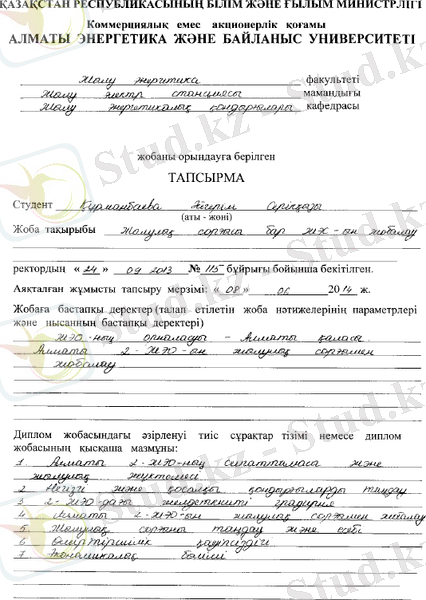 ҚАЗАҚСТАН РЕСПУБЛИКАСЫНЫҢ БІЛІМ ЖӘНЕ ҒЫЛЫМ МИНИСТРЛІГІ
Коммерциялық емес акционерлік қоғамы
АЛМАТЫ ЭНЕРГЕТИКА ЖӘНЕ БАЙЛАНЫС УНИВЕРСИТЕТІ
Жылу энергетика факультеті
Жылу электр станциясы мамандығы
Жылу энергетикалық қондырғылары кафедрасы
жобаны орындауға берілген
ТАПСЫРМА
Студент Құрманбаева Серікқызы
(аты - жөні)
Жоба тақырыбы Жылулық сорғысы бар ЖЭО-ын жобалау
ректордың « 24 » 09 2013 № 115 бұйрығы бойынша бекітілген.
Аяқталған жұмысты тапсыру мерзімі: « 08 » 06 2014 ж.
Жобаға бастапқы деректер (талап етілетін жоба нәтижелерінің параметрлері
және нысанның бастапқы деректері)
ЖЭО-ның орналасуы - Алматы қаласы.
Алматы 2-ЖЭО-ын жылулық сорғымен
жобалау
Диплом жобасындағы әзірленуі тиіс сұрақтар тізімі немесе диплом
жобасының қысқаша мазмұны:
1 Алматы 2-ЖЭО-ның сипаттамасы және
жылулық жүктемесі
2 Негізгі және қосалқы қондырғыларды таңдау
3 2-ЖЭО-дағы желдеткішті градирня
4 Алматы 2-ЖЭО-ын жылулық сорғымен жобалау
5 Жылулық сорғыны таңдау және есебі
6 Өміртіршілік қауіпсіздігі
7 Экономикалық бөлімі